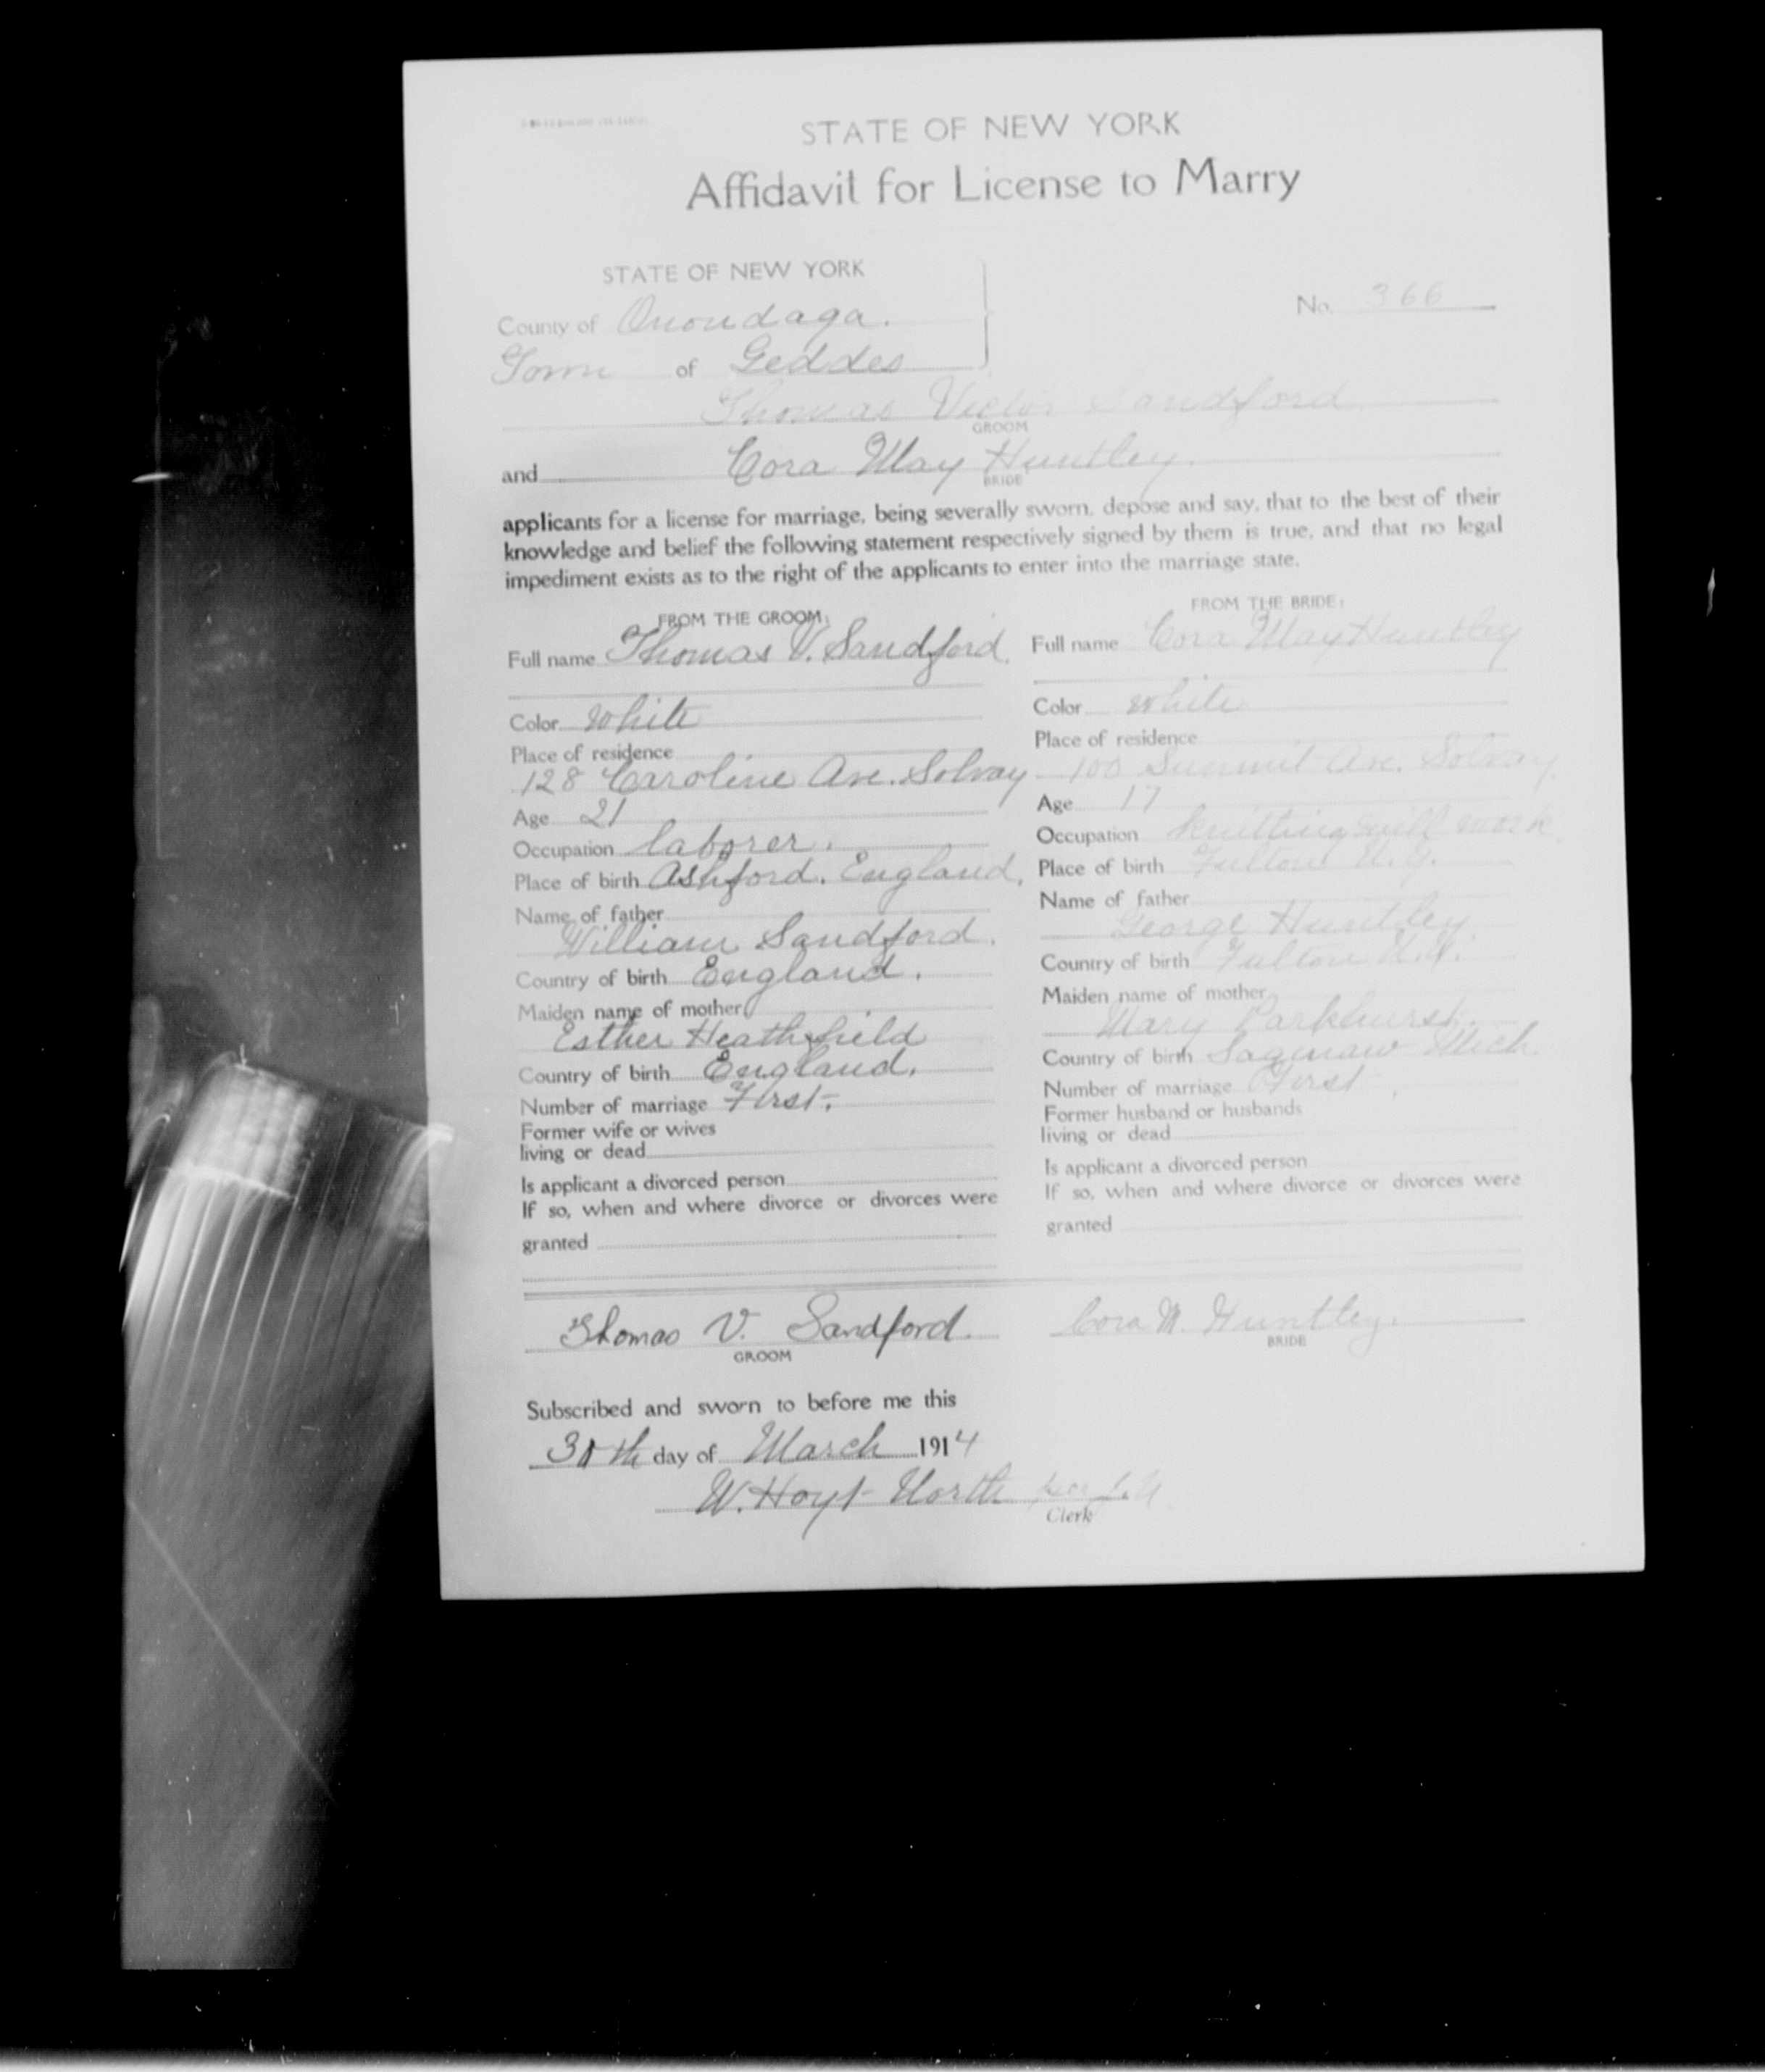 STATE OF NEW YORK
Affidavit for License to Marry
STATE OF NEW YORK
County of Onondaga.
No. 366
Town of Geddes
Thomas Victor Sandford
GROOM
and Cora May Huntley.
BRIDE
applicants for a license for marriage, being severally sworn, depose and say, that to the best of their
knowledge and belief the following statement respectively signed by them is true, and that no legal
impediment exists as to the right of the applicants to enter into the marriage state.
FROM THE GROOM:
Full name Thomas V. Sandford.
Color White
Place of residence
128 Caroline Ave. Solvay
Age 21
Occupation laborer.
Place of birth Ashford. England.
Name of father
William Sandford.
Country of birth England.
Maiden name of mother
Esther Heathfield
Country of birth England.
Number of marriage First.
Former wife or wives
living or dead
Is applicant a divorced person
If so, when and where divorce or divorces were
granted
FROM THE BRIDE:
Full name Cora May Huntley
Color white
Place of residence
100 Summit Ave. Solvay.
Age 17
Occupation Knitting mill work
Place of birth Fulton N.Y.
Name of father
George Huntley
Country of birth Fulton N.Y.
Maiden name of mother
Mary Parkhurst.
Country of birth Saginaw Mich.
Number of marriage First
Former husband or husbands
living or dead
Is applicant a divorced person
If so, when and where divorce or divorces were
granted
Thomas V. Sandford.
GROOM
Cora M. Huntley.
BRIDE
Subscribed and sworn to before me this
day of March 1914
W. Hoyt North per
Clerk